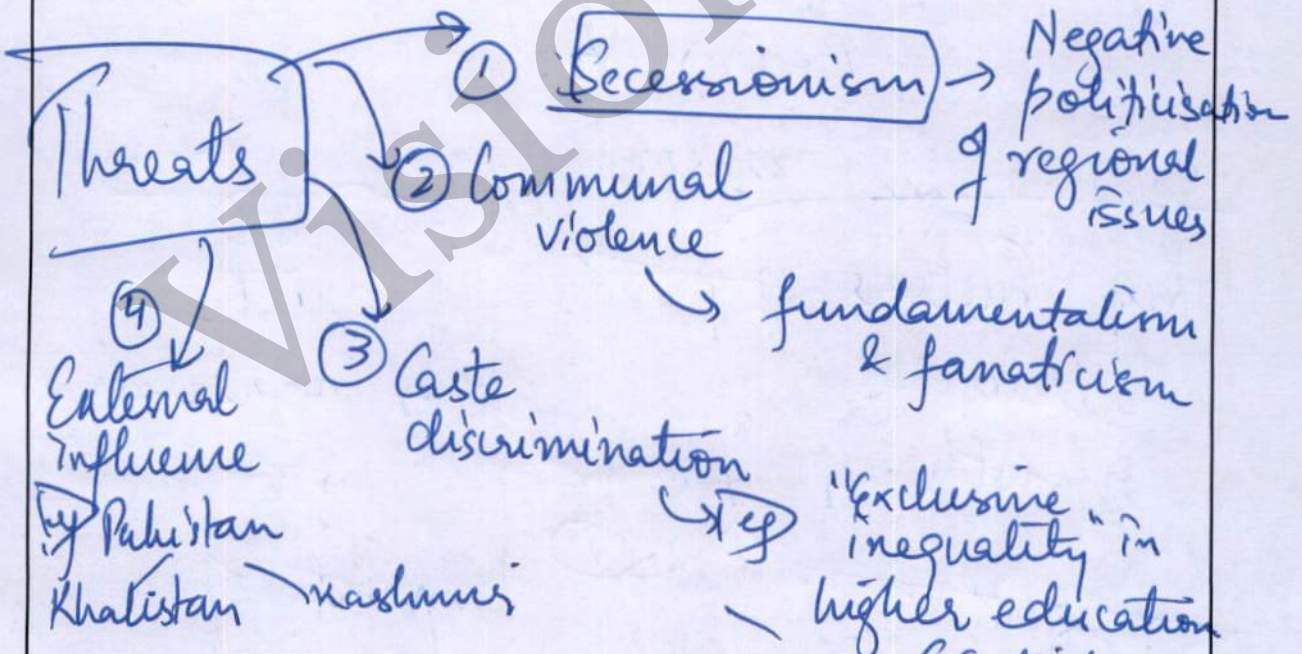 Threats
① Secessionism → Negative
politicisation
of regional
issues
② Communal
violence
↳ fundamentalism
& fanaticism
③ Caste
discrimination
↳ eg "exclusive
inequality" in
higher education
④
External
influence
eg Pakistan
Khalistan
Vision